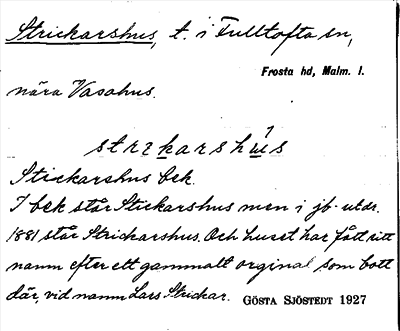 Strickarshus, t. i Fulltofta sn,
Frosta hd, Malm. l.
nära Vasahus.
strɪkarshús
Stickarshus bek.
I bek står Stickarshus men i jb. utdr.
1881 står Strickarshus. Och huset har fått sitt
namn efter ett gammalt orginal som bott
där, vid namn Lars Strickar. GÖSTA SJÖSTEDT 1927